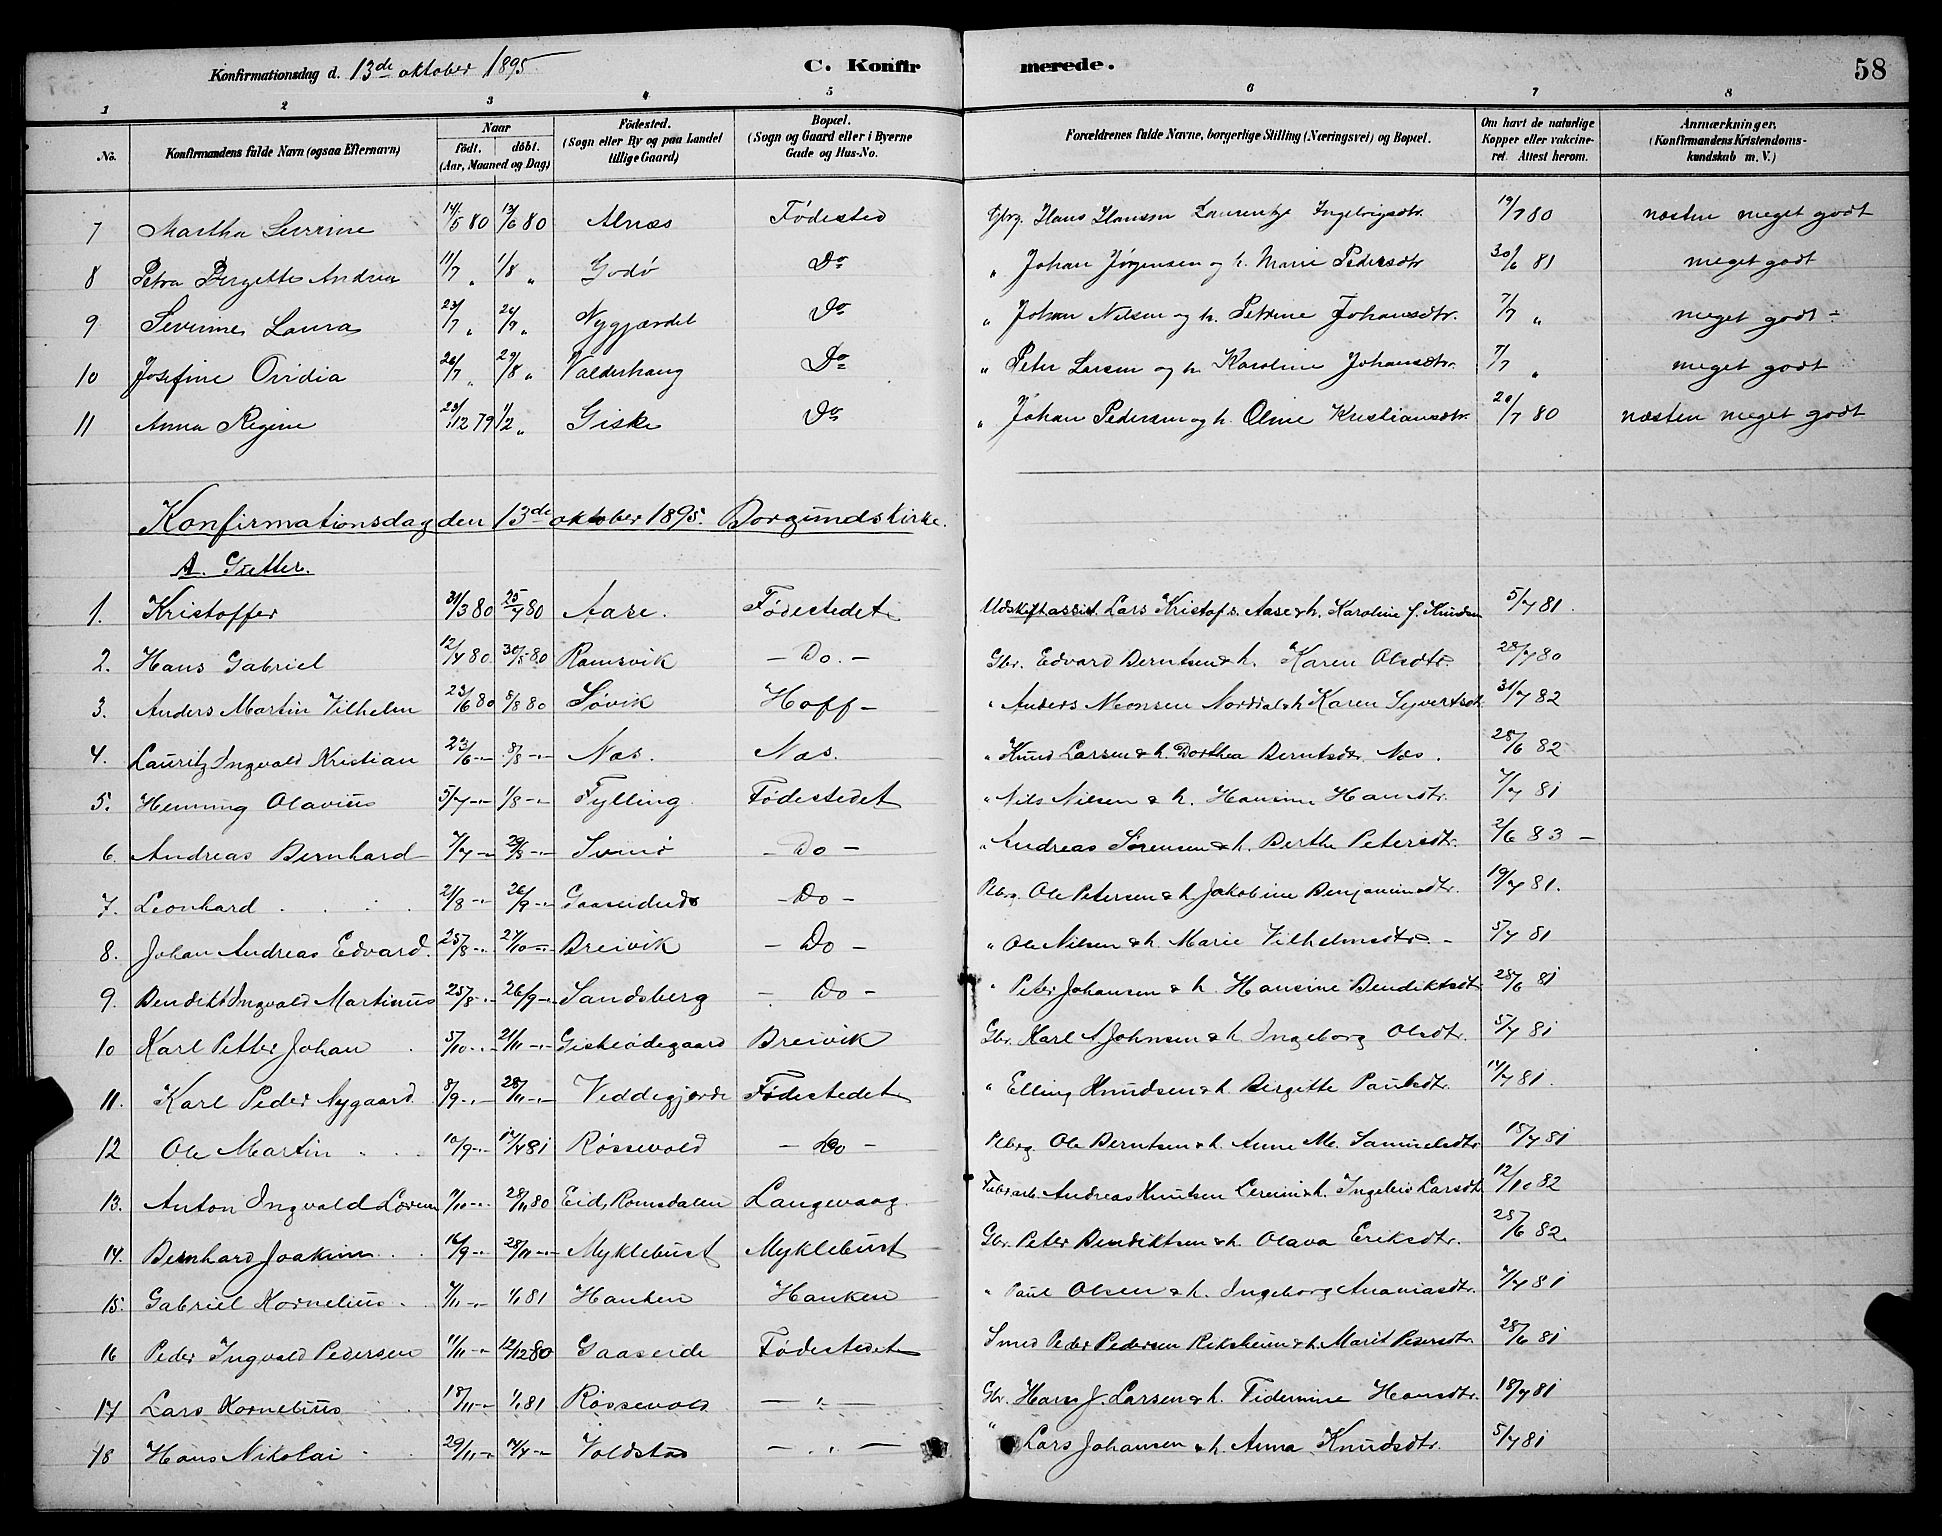 Konfirmationsdag d. 13de oktober 1895 C. Konfirmerede. 58
1 2 3 4 5 6 7 8
No. Konfirmandens fulde Navn (ogsaa Efternavn) Naar født. døbt. (Aar, Maaned og Dag) Fødested. (Sogn eller By og paa Landet tillige Gaard) Bopæl. (Sogn og Gaard eller i Byerne Gade og Hus-No. Forældrenes fulde Navne, borgerlige Stilling (Næringsvei) og Bopæl. Om havt de naturlige Kopper eller vakcineret. Attest herom. Anmærkninger. (Konfirmandens Kristendomskundskab m. V.)
7 Martha Severine 14/5 80 13/6 80 Alnæs Fødested Gbrg. Hans Hansen Laurentze Ingebrigtsdtr. 19/7 80 næsten meget godt
8 Petra Bergette Andrea 11/7 " 1/8 " Godø Do " Johan Jørgensen og h. Marie Pedersdtr 30/6 81 meget godt
9 Severine Laura 23/7 " " Nygjærdet Do " Johan Nilsen og h. Petrine Johansdtr. 7/7 " meget godt -
10 Josefine Ovidia 26/7 " 29/8 " Valderhaug Do " Peter Larsen og h. Karoline Johansdtr. 7/7 " meget godt
11 Anna Regine 23/12 79 1/2 " Giske Do " Johan Pedersen og h. Oline Kristiansdtr. 20/7 80 næsten meget godt
Konfirmationsdag den 13de oktober 1895. Borgunds kirke.
A. Gutter.
1. Kristoffer 31/3 80 25/4 80 Aase. Fødestedet Udskiftassist. Lars Kristofs. Aase & h. Karoline f. Knudsen 5/7 81.
2. Hans Gabriel 12/4 80 30/5 80 Ramsvik - Do. - Gbr. Edvard Berntsen & h. Karen Olsdtr. 28/7 80
3. Anders Martin Vilhelm 23/6 80 8/8 80 Søvik Hoff - " Anders Monsen Norddal & h Karen Syvertsdtr. 31/7 82
4. Lauritz Ingvald Kristian 23/6 -"- 8/8 -"- Næs. Næs. " Knud Larsen & h. Dorthea Berntsdtr. Næs. 28/6 82
5. Henning Olavius 5/7 -"- 1/8 -"- Fylling. Fødestedet " Nils Nilsen & h. Hansine Hansdtr. 7/7 81
6. Andreas Bernhard 7/7 -"- 29/8 -"- Svinø - Do - " Andreas Sørensen & h. Berthe Petersdtr. 2/6 83 -
7. Leonhard 21/8 -"- 26/9 -"- - Do - Ole Petersen & h Jakobine Benjaminsdtr. 19/7 81.
8. Johan Andreas Edvard. 25/8 -"- 24/10 -"- Breivik - Do - " Ole Nilsen & h. Marie Vilhelmsdtr. - 5/7 81
9. Bendikt Ingvald Martinus 25/8 -"- 26/9 -"- Sandsberg - Do - " Peter Johansen & h. Hansine Bendiktsdtr 28/6 81
10 Karl Petter Johan 5/10 -"- 21/11 -"- Giskeødegaard Breivik Gbr. Karl A Johnsen & h Ingeborg Olsdtr. 5/7 81
11. Karl Peder Nygaard 8/9 -"- 28/11 -"- Veddegjerde Fødestedet " Elling Knudsen & h Bergitte Paulsdtr. 81.
12 Ole Martin 10/9 -"- 81 Røssevold - Do - Ole Berntsen & h. Anne M. Samuelsdtr. 18/7 81
13. Anton Ingvald Loren 28/11 80 Eid, Romsdalen Langevaag. Fabrarb. Andreas Knutsen & h. Larsdt. 12/10 82
14. Bernhard Joakim 16/9 -"- 28/11 -"- Myklebust Myklebust Gbr. Peter Bendiktsen & h. Olava Eriksdtr. 28/6 82.
15. Gabriel Kornelius 7/11 -"- 1/1 81 Hanken Hanken " Paul Olsen & h. Ingeborg Ananiasdtr. 7/7 81
16 Peder Ingvald Pedersen 11/11 -"- 12/12 80 Gaaseide Fødestedet Smed Peder Pedersen Reksheim & h. Marit Pedersdtr. 28/6 81
17 Lars Kornelius 18/11 -"- 1/1 81 Røssevold - " - Gbr. Hans J. Larsen & h. Hansdtr. 18/7 81
18 Hans Nikolai 29/11 -"- Voldstad - " - " Lars Johansen & h. Anna Knudsdtr. 5/7 81